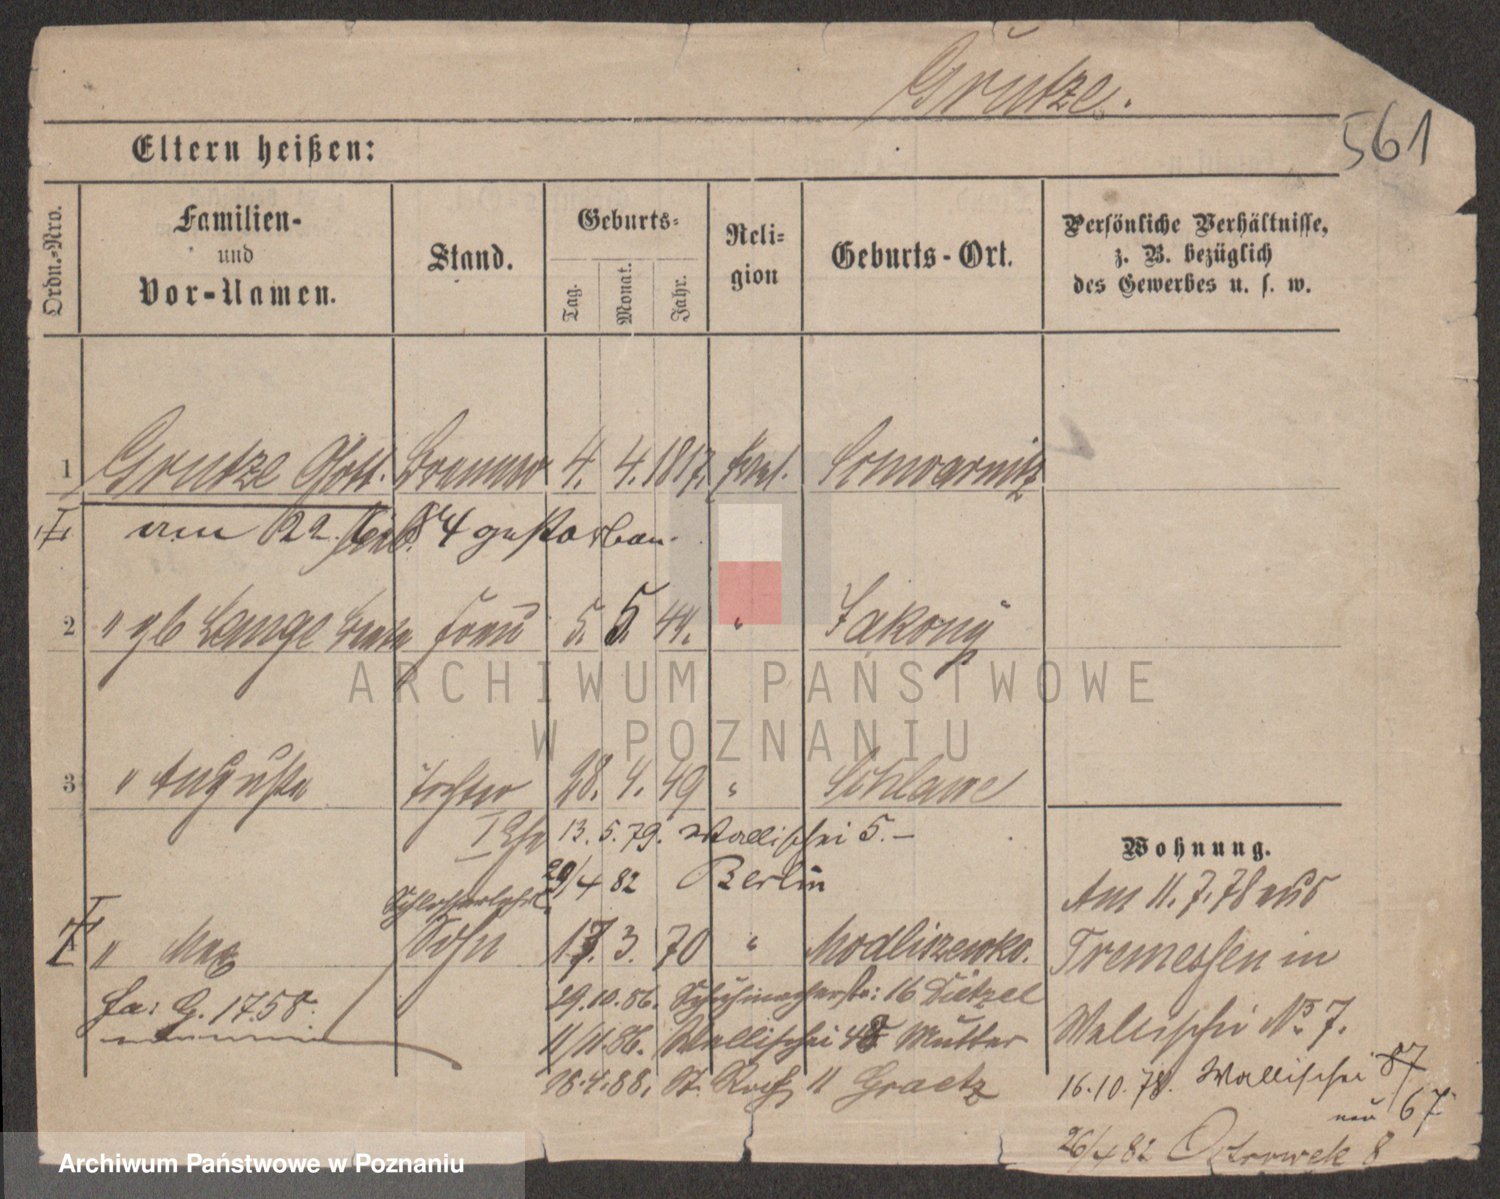 Grütze.
561
Eltern heißen:
Ordn.-Nro.
Familien-
und
Vor-Namen.
Stand.
Geburts-
Tag.
Monat.
Jahr.
Reli-
gion
Geburts-Ort.
Persönliche Verhältnisse,
z. B. bezüglich
des Gewerbes u. s. w.
1 Grutze Gott. 4. 4. 1817.
am 22. 84 gestorben.
2 " gb Lange Frau 5. 5. 44. " Zakorzy
3 " Augusta Tochter 28. 4. 49 " Schlawe
13. 5. 79. Wallischei 5. –
29/4 82 Berlin
Schlosserlehrl.
4 " Max Sohn 17. 3. 70 " Modliszewko.
fa: G. 1758.
29.10.86. Schuhmacherstr: 16 Dietzel
11/11.86. Wallischei 48 Mutter
18.4.88. St. Roch 11 Graetz
Wohnung.
Am 11. 7. 78 aus
Tremessen in
Wallischei No. 7.
16.10.78. Wallischei 87
neu 67
26/4 82 Ostrowek 8
ARCHIWUM PAŃSTWOWE
W POZNANIU
Archiwum Państwowe w Poznaniu